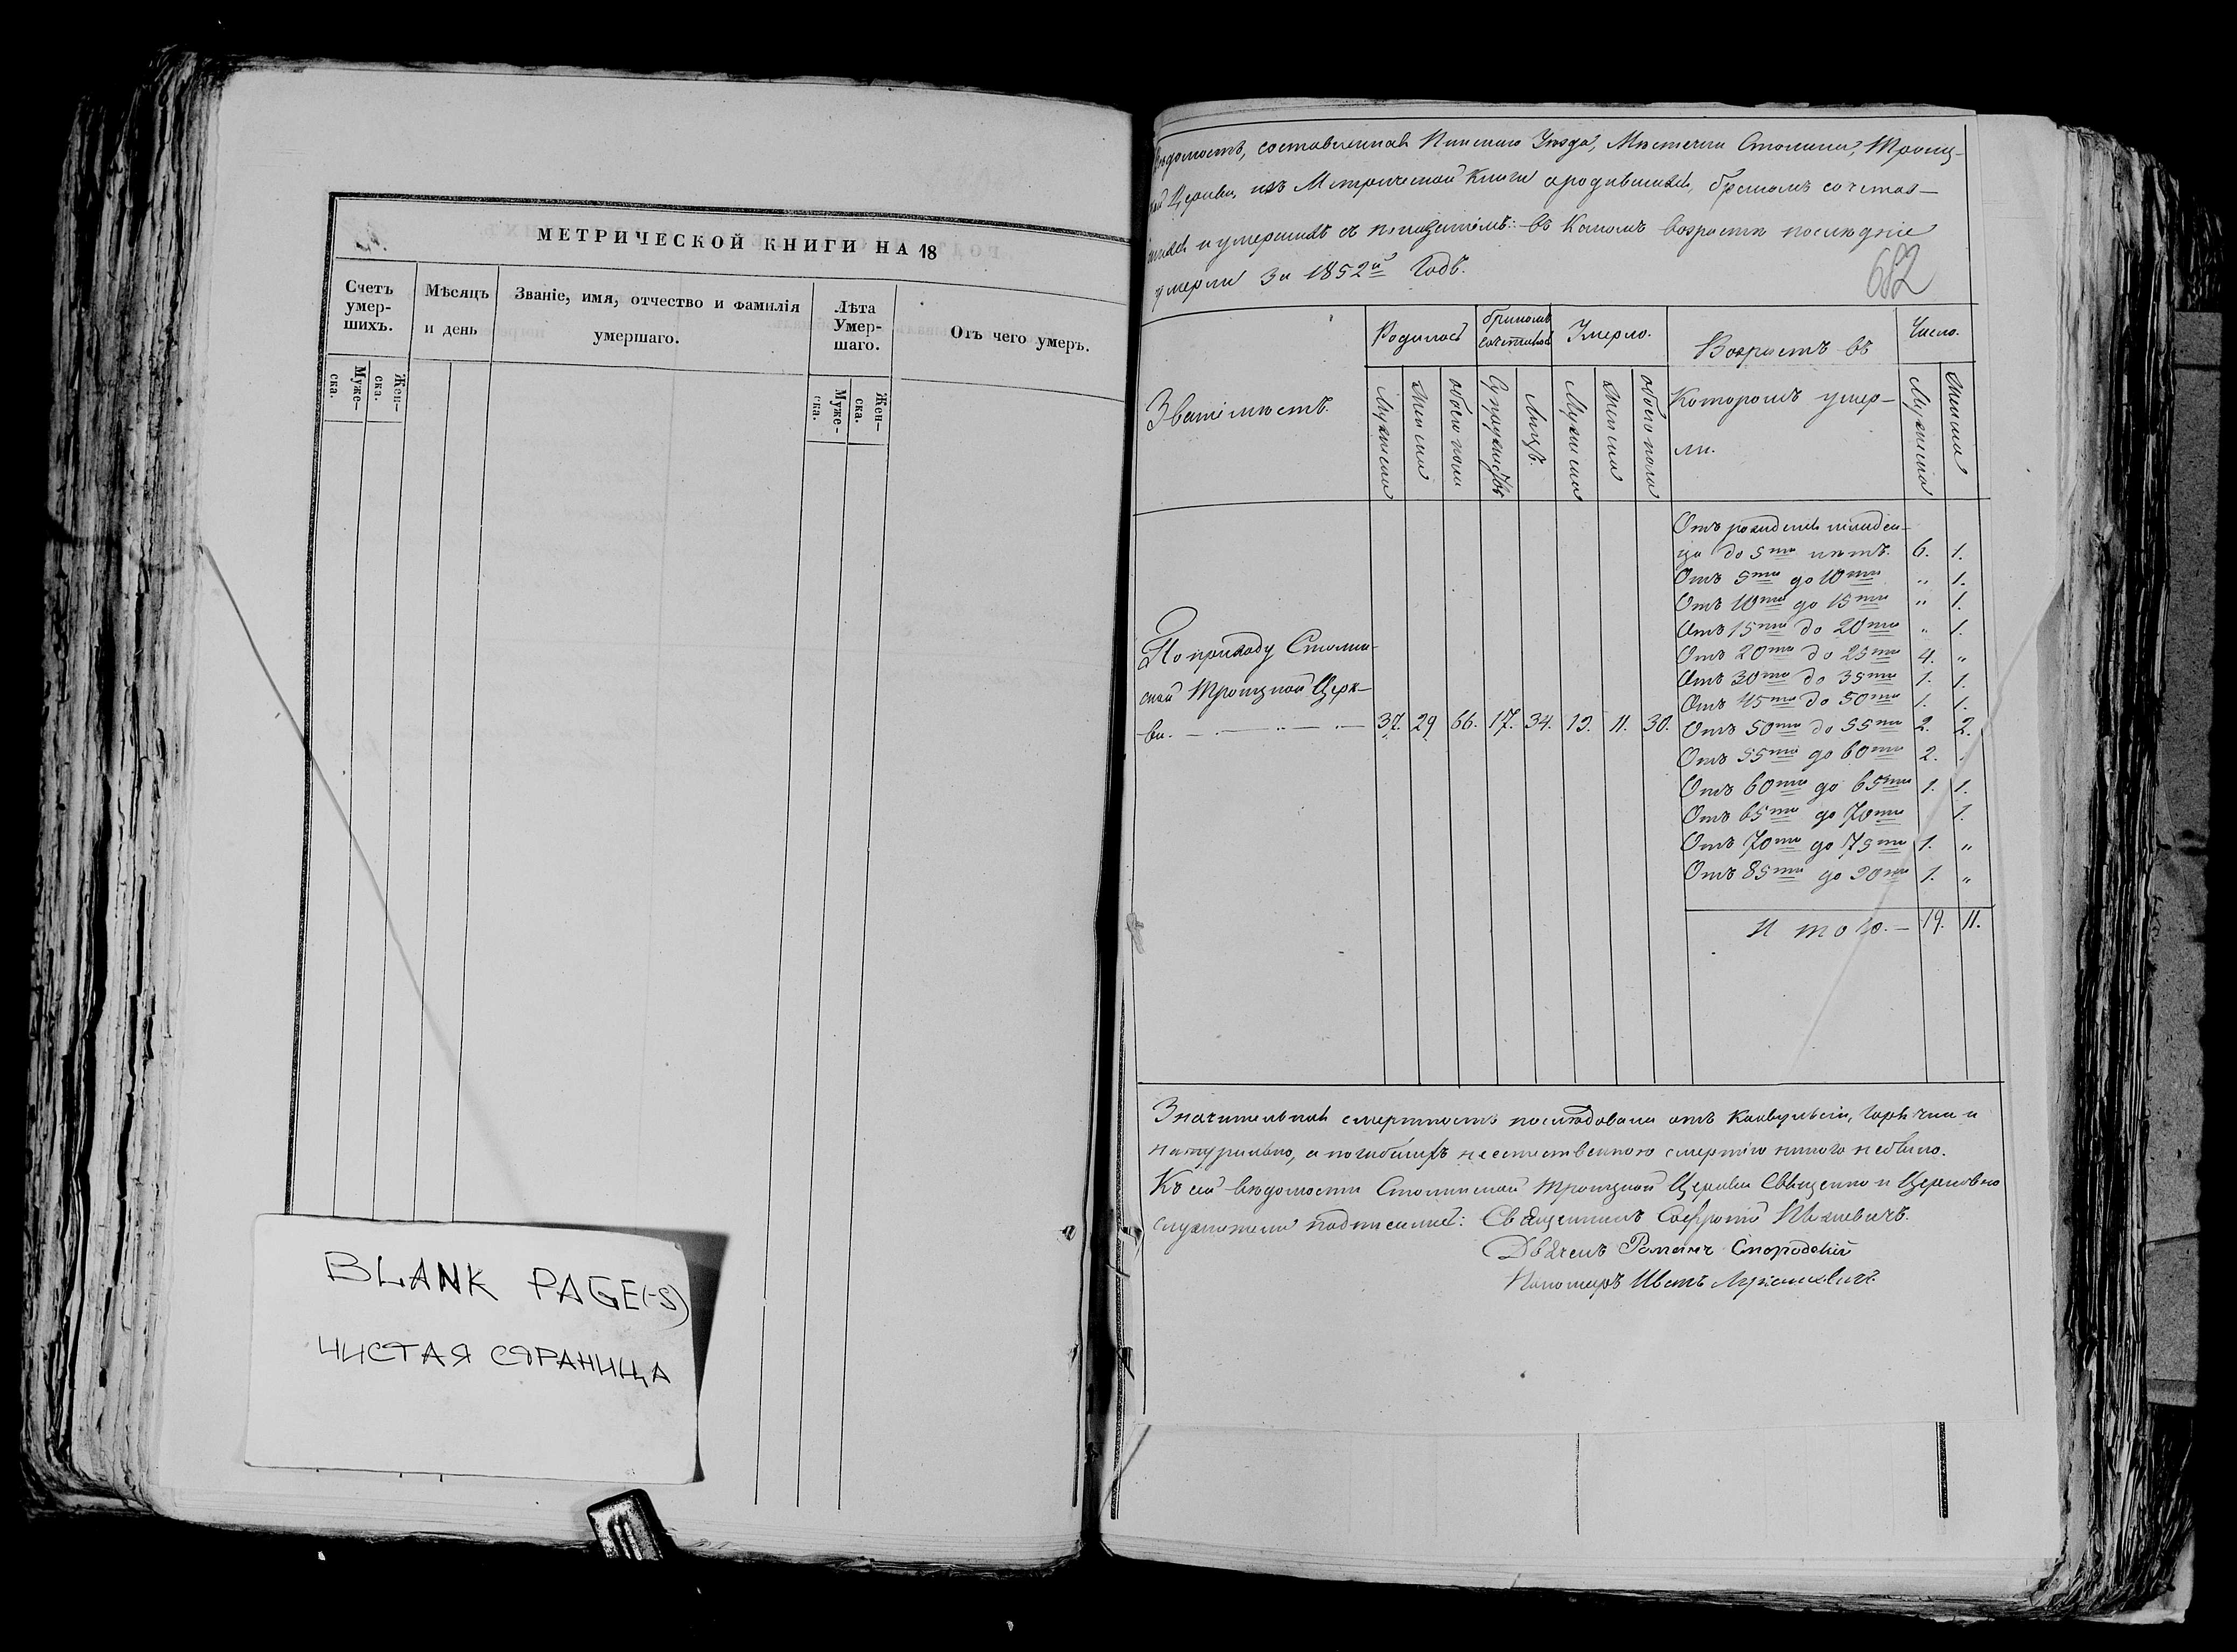 МЕТРИЧЕСКОЙ КНИГИ НА 18
Счетъ умер-шихъ.
Мѣсяцъ и день
Званіе, имя, отчество и фамилія умершаго.
Лѣта Умер-шаго.
Отъ чего умеръ.
Муже-ска.
Жен-ска.
Муже-ска.
Жен-ска.
BLANK PAGE(-S)
ЧИСТАЯ СТРАНИЦА
Вѣдомость, составленная Пинскаго Уѣзда, Мѣстечка Столина, Троиц-
кой Церкви, изъ Метрической Книги о родившихся, бракомъ сочетав-
шихся и умершихъ съ показаніемъ: въ какомъ возрастѣ послѣдніе
умерли за 1852й Годъ.
682
Званіе мѣстъ.
Родилось
Бракомъ сочеталось
Умерло.
Возрастъ въ
Которомъ умер-
ли.
Число.
Мужеска
Женска
обоего пола
Супружествъ
Лицъ.
Мужеска
Женска
обоего пола
Мужеска
Женска
По приходу Столин-
ской Троицкой Церк-
ви. 37. 29 66. 17. 34. 19. 11. 30.
Отъ рожденія младен-
ца до 5ти лѣтъ. 6. 1.
Отъ 5ти до 10ти " 1.
Отъ 10ти до 15ти " 1.
Отъ 15ти до 20ти " 1.
Отъ 20ти до 25ти 4. "
Отъ 30ти до 35ти 1. 1.
Отъ 45ти до 50ти 1. 1.
Отъ 50ти до 55ти 2. 2.
Отъ 55ти до 60ти 2.
Отъ 60ти до 65ти 1. 1.
Отъ 65ти до 70ти 1.
Отъ 70ти до 75ти 1. "
Отъ 85ти до 90ти 1. "
Итого. — 19. 11.
Значительная смертность послѣдовала отъ Конвульсіи, Горячки и
натурально, а погибшихъ неестественною смертію никого небыло.
Къ сей вѣдомости Столинской Троицкой Церкви Священно и Церковно
служители подписались: Священникъ Софроній
Дьячекъ Романъ Скородскій
Пономарь